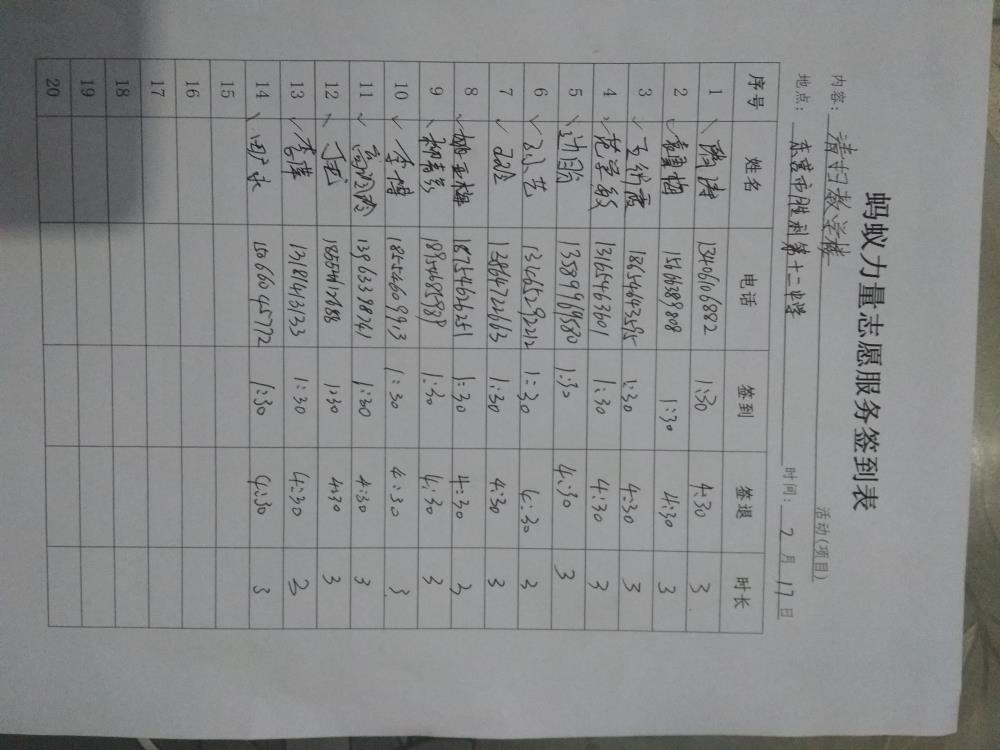 蚂蚁力量志愿服务签到表
活动(项目)
内容: 清扫教学楼
地点: 东营市胜利第十二中学 时间: 2月17日
序号 姓名 电话 签到 签退 时长
1 隋涛 13406106882 1:30 4:30 3
2 15666389808 1:30 4:30 3
3 王纳霞 18654643595 1:30 4:30 3
4 范学敏 13165463601 1:30 4:30 3
5 13589969580 1:30 4:30 3
6 13465292212 1:30 4:30 3
7 12864722663 1:30 4:30 3
8 姚亚梅 18754626251 1:30 4:30 3
9 柳青彩 1:30 4:30 3
10 李博 18554609913 1:30 4:30 3
11 13963398761 1:30 4:30 3
12 1:30 4:30 3
13 李萍 13181413133 1:30 4:30 3
14 田广永 15066045772 1:30 4:30 3
15
16
17
18
19
20